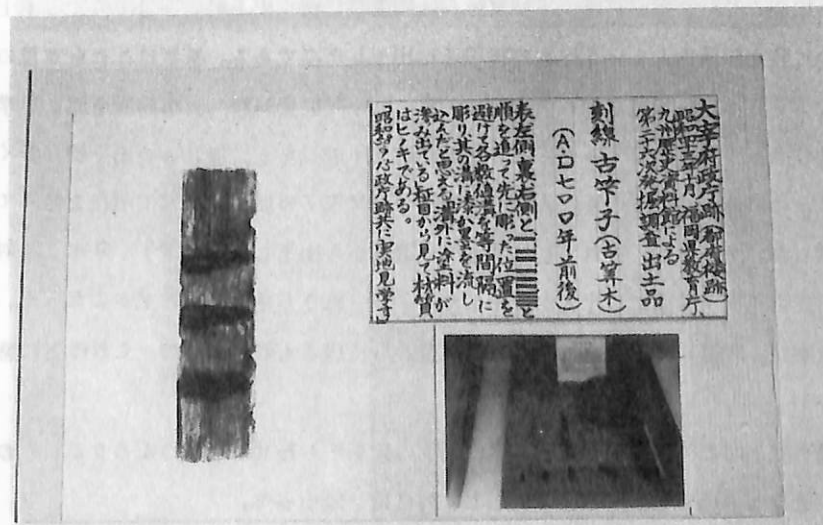 大宰府政庁跡(都府楼跡)
昭和十三年十月 福岡県教育庁、
九州歴史資料館による
第二十六次発掘調査 出土品
刻線 古算子(古算木)
(A・D七〇〇年前後)
表左側 裏右側と、と
順を追って先に彫った位置を
避けて各数値溝を等間隔に
彫り其の溝に漆か墨を流し
込んだと思える。溝外に塗料が
滲み出ている。柾目から見て材質
はヒノキである。